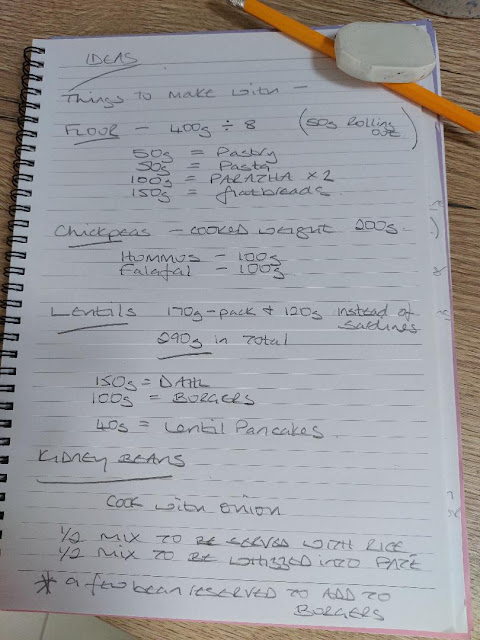 IDEAS
Things to make with -
FLOUR - 400g ÷ 8 (50g Rolling out)
50g = Pastry
50g = Pasta
100g = PARATHA x 2
150g = flatbreads
Chickpeas - COOKED weight 200g.
HUMMUS - 100g
Falafal - 100g
Lentils 170g-pack + 120g instead of sardines
290g in total
150g = DAHL
100g = BURGERS
40g = Lentil Pancakes.
KIDNEY BEANS
COOK with onion
1/2 MIX TO BE SERVED WITH RICE
1/2 MIX TO BE WHIZZED INTO PATE
* a few bean reserved TO ADD TO
BURGERS